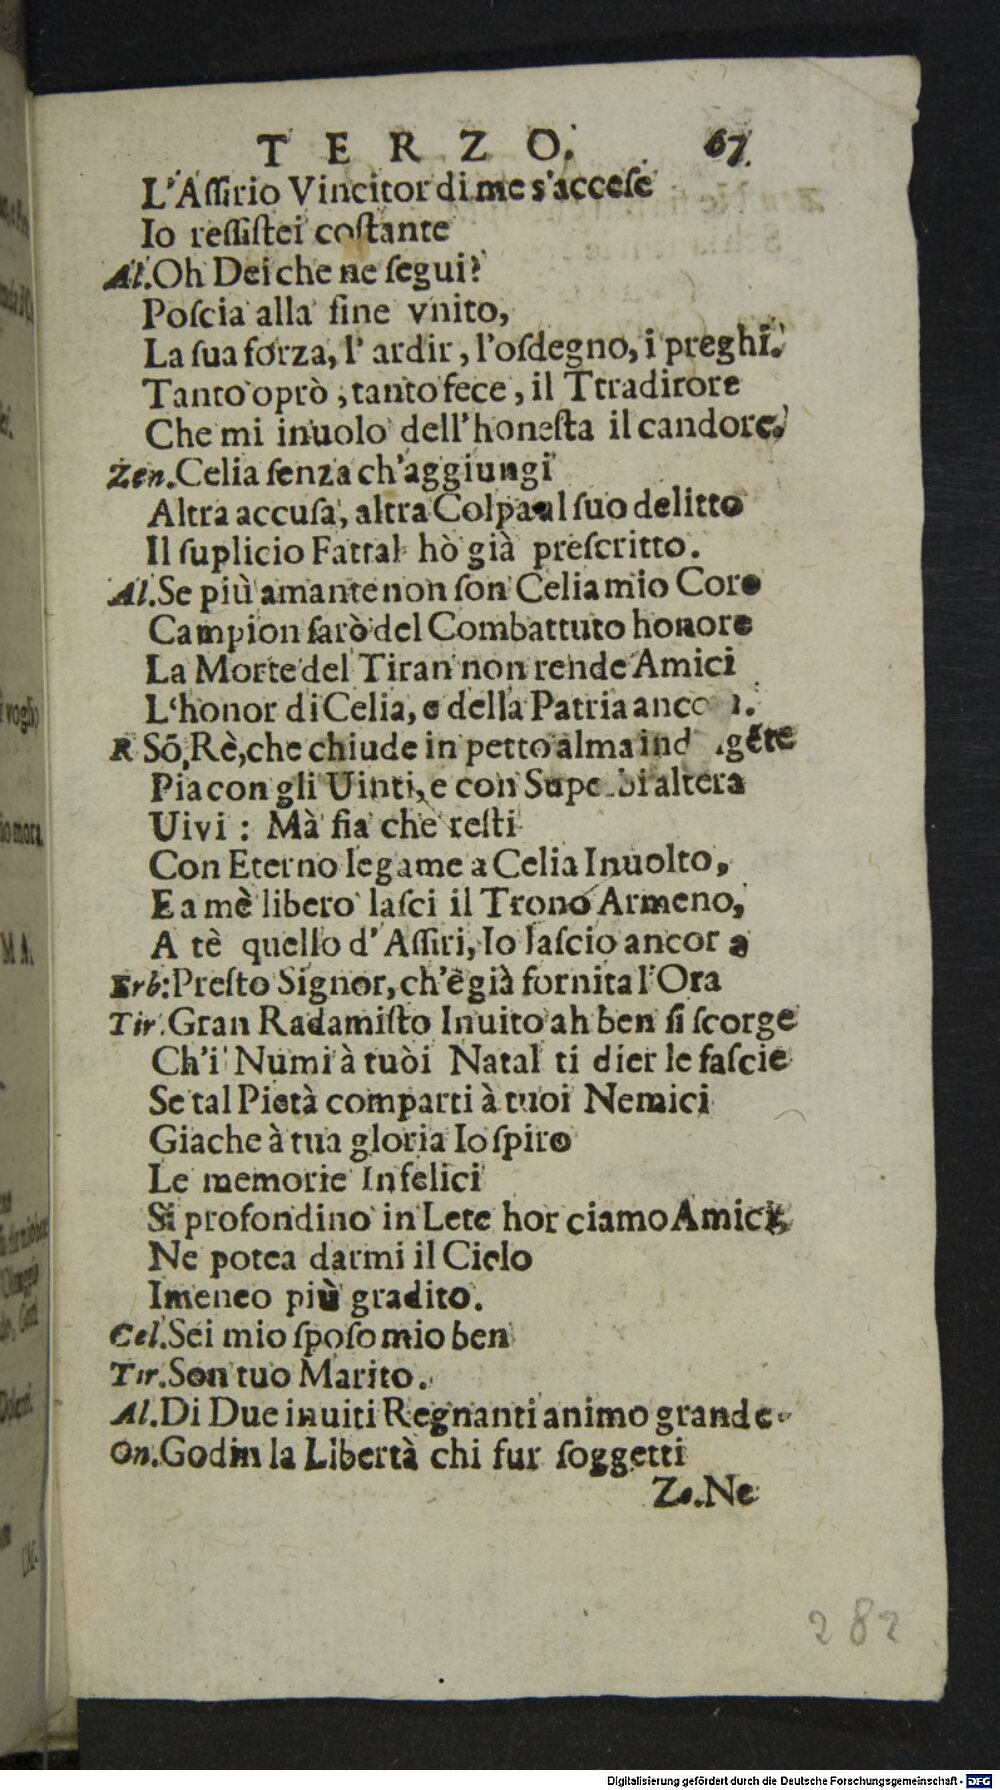 TERZO. 67.
L'Aſſirio Vincitor di me s'acceſe
Io reſſiſtei coſtante
Al. Oh Dei che ne ſegui?
Poſcia alla fine vnito,
La ſua forza, l' ardir, l'osdegno, i preghi.
Tanto oprò, tanto fece, il Ttradirore
Che mi inuolo dell'honeſta il candore.
Zen. Celia ſenza ch'aggiungi
Altra accuſa, altra Colpa al ſuo delitto
Il ſuplicio Fattal hò già preſcritto.
Al. Se più amante non ſon Celia mio Core
Campion ſarò del Combattuto honore
La Morte del Tiran non rende Amici
L'honor di Celia, e della Patria
R Sō, Rè, che chiude in petto alma
Pia con gli Uinti, e con altera
Uivi: Mà ſia che reſti
Con Eterno legame a Celia Inuolto,
E a mè libero laſci il Trono Armeno,
A tè quello d' Aſſiri, Io laſcio ancor a
Erb: Preſto Signor, ch'è già fornita l'Ora
Tir. Gran Radamiſto Inuito ah ben ſi ſcorge
Ch'i Numi à tuòi Natal ti dier le faſcie
Se tal Pietà comparti à tuoi Nemici
Giache à tua gloria Io ſpiro
Le memorie Infelici
Si profondino in Lete hor ciamo Amici,
Ne potea darmi il Cielo
Imeneo più gradito.
Cel. Sei mio ſpoſo mio ben
Tir. Son tuo Marito.
Al. Di Due inuiti Regnanti animo grande.
On. Godin la Libertà chi fur ſoggetti
Ze. Ne
282
Digitalisierung gefördert durch die Deutsche Forschungsgemeinschaft - DFG